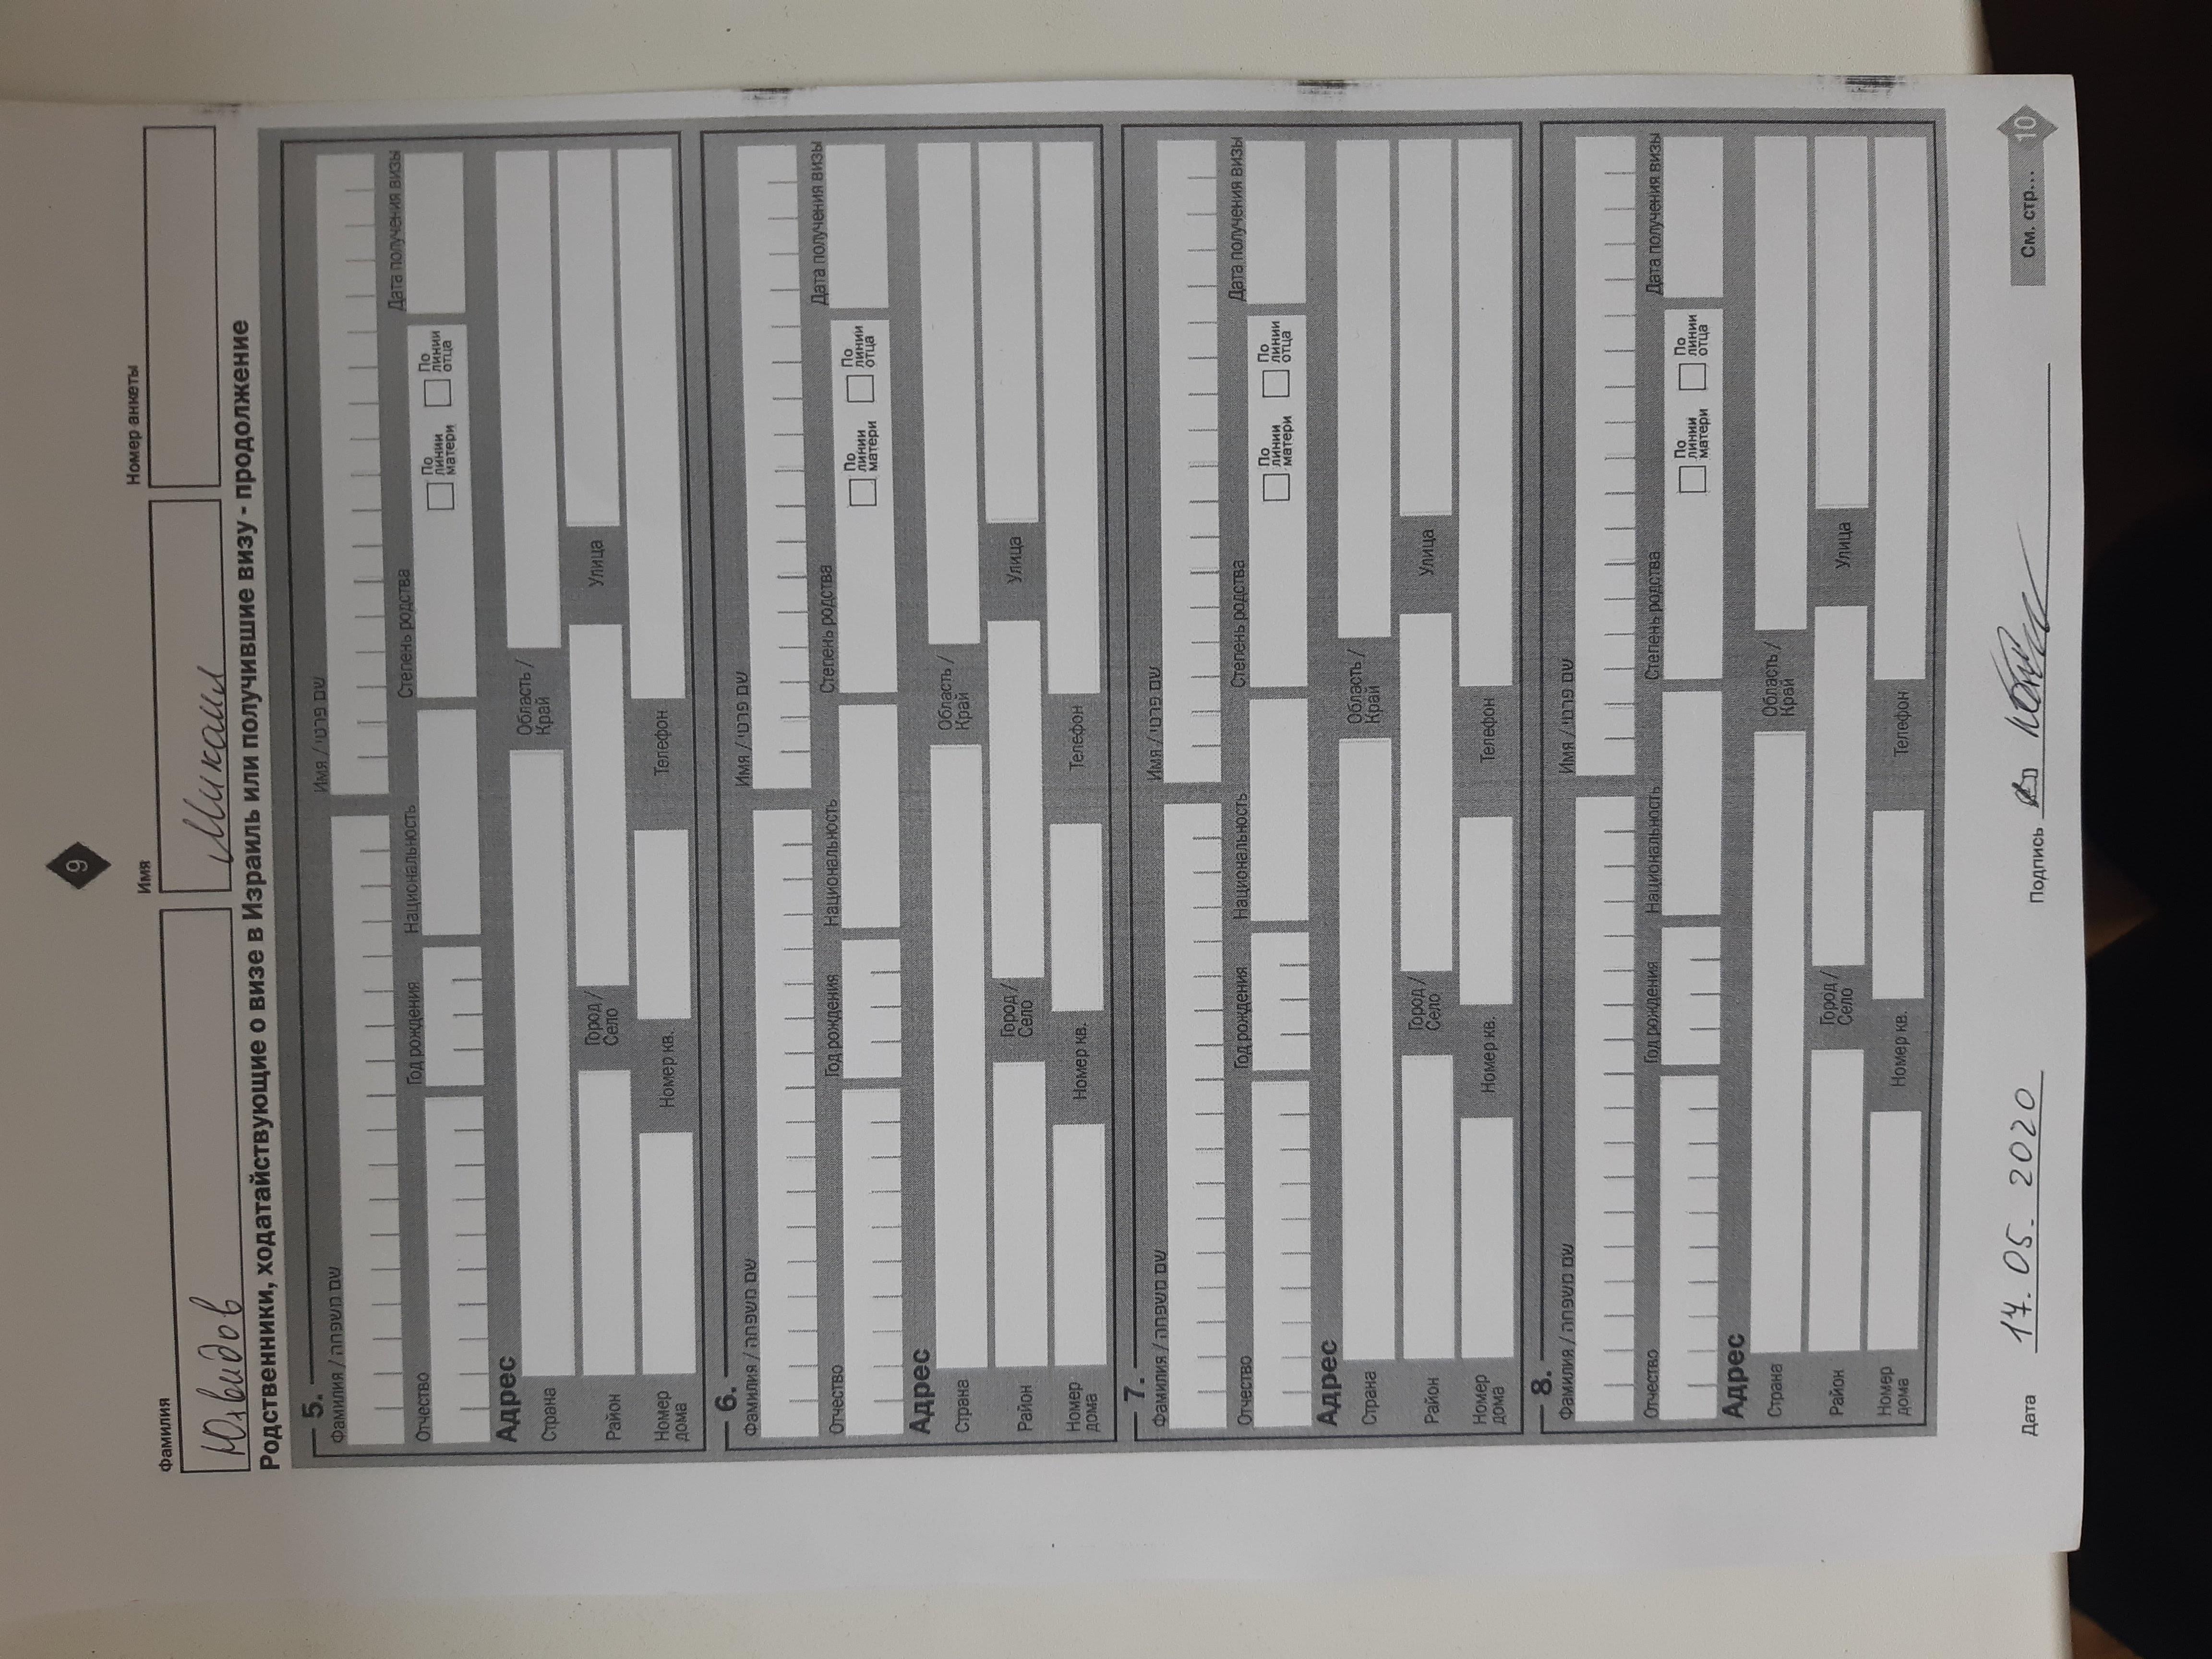 9
Фамилия Имя Номер анкеты
Михаил
Родственники, ходатайствующие о визе в Израиль или получившие визу - продолжение
5.
Фамилия / שם משפחה Имя / שם פרטי
Отчество Год рождения Национальность Степень родства По линии матери По линии отца Дата получения визы
Адрес
Страна Область / Край
Район Город / Село Улица
Номер дома Номер кв. Телефон
6.
Фамилия / שם משפחה Имя / שם פרטי
Отчество Год рождения Национальность Степень родства По линии матери По линии отца Дата получения визы
Адрес
Страна Область / Край
Район Город / Село Улица
Номер дома Номер кв. Телефон
7.
Фамилия / שם משפחה Имя / שם פרטי
Отчество Год рождения Национальность Степень родства По линии матери По линии отца Дата получения визы
Адрес
Страна Область / Край
Район Город / Село Улица
Номер дома Номер кв. Телефон
8.
Фамилия / שם משפחה Имя / שם פרטי
Отчество Год рождения Национальность Степень родства По линии матери По линии отца Дата получения визы
Адрес
Страна Область / Край
Район Город / Село Улица
Номер дома Номер кв. Телефон
Дата 17.05.2020 Подпись См. стр... 10